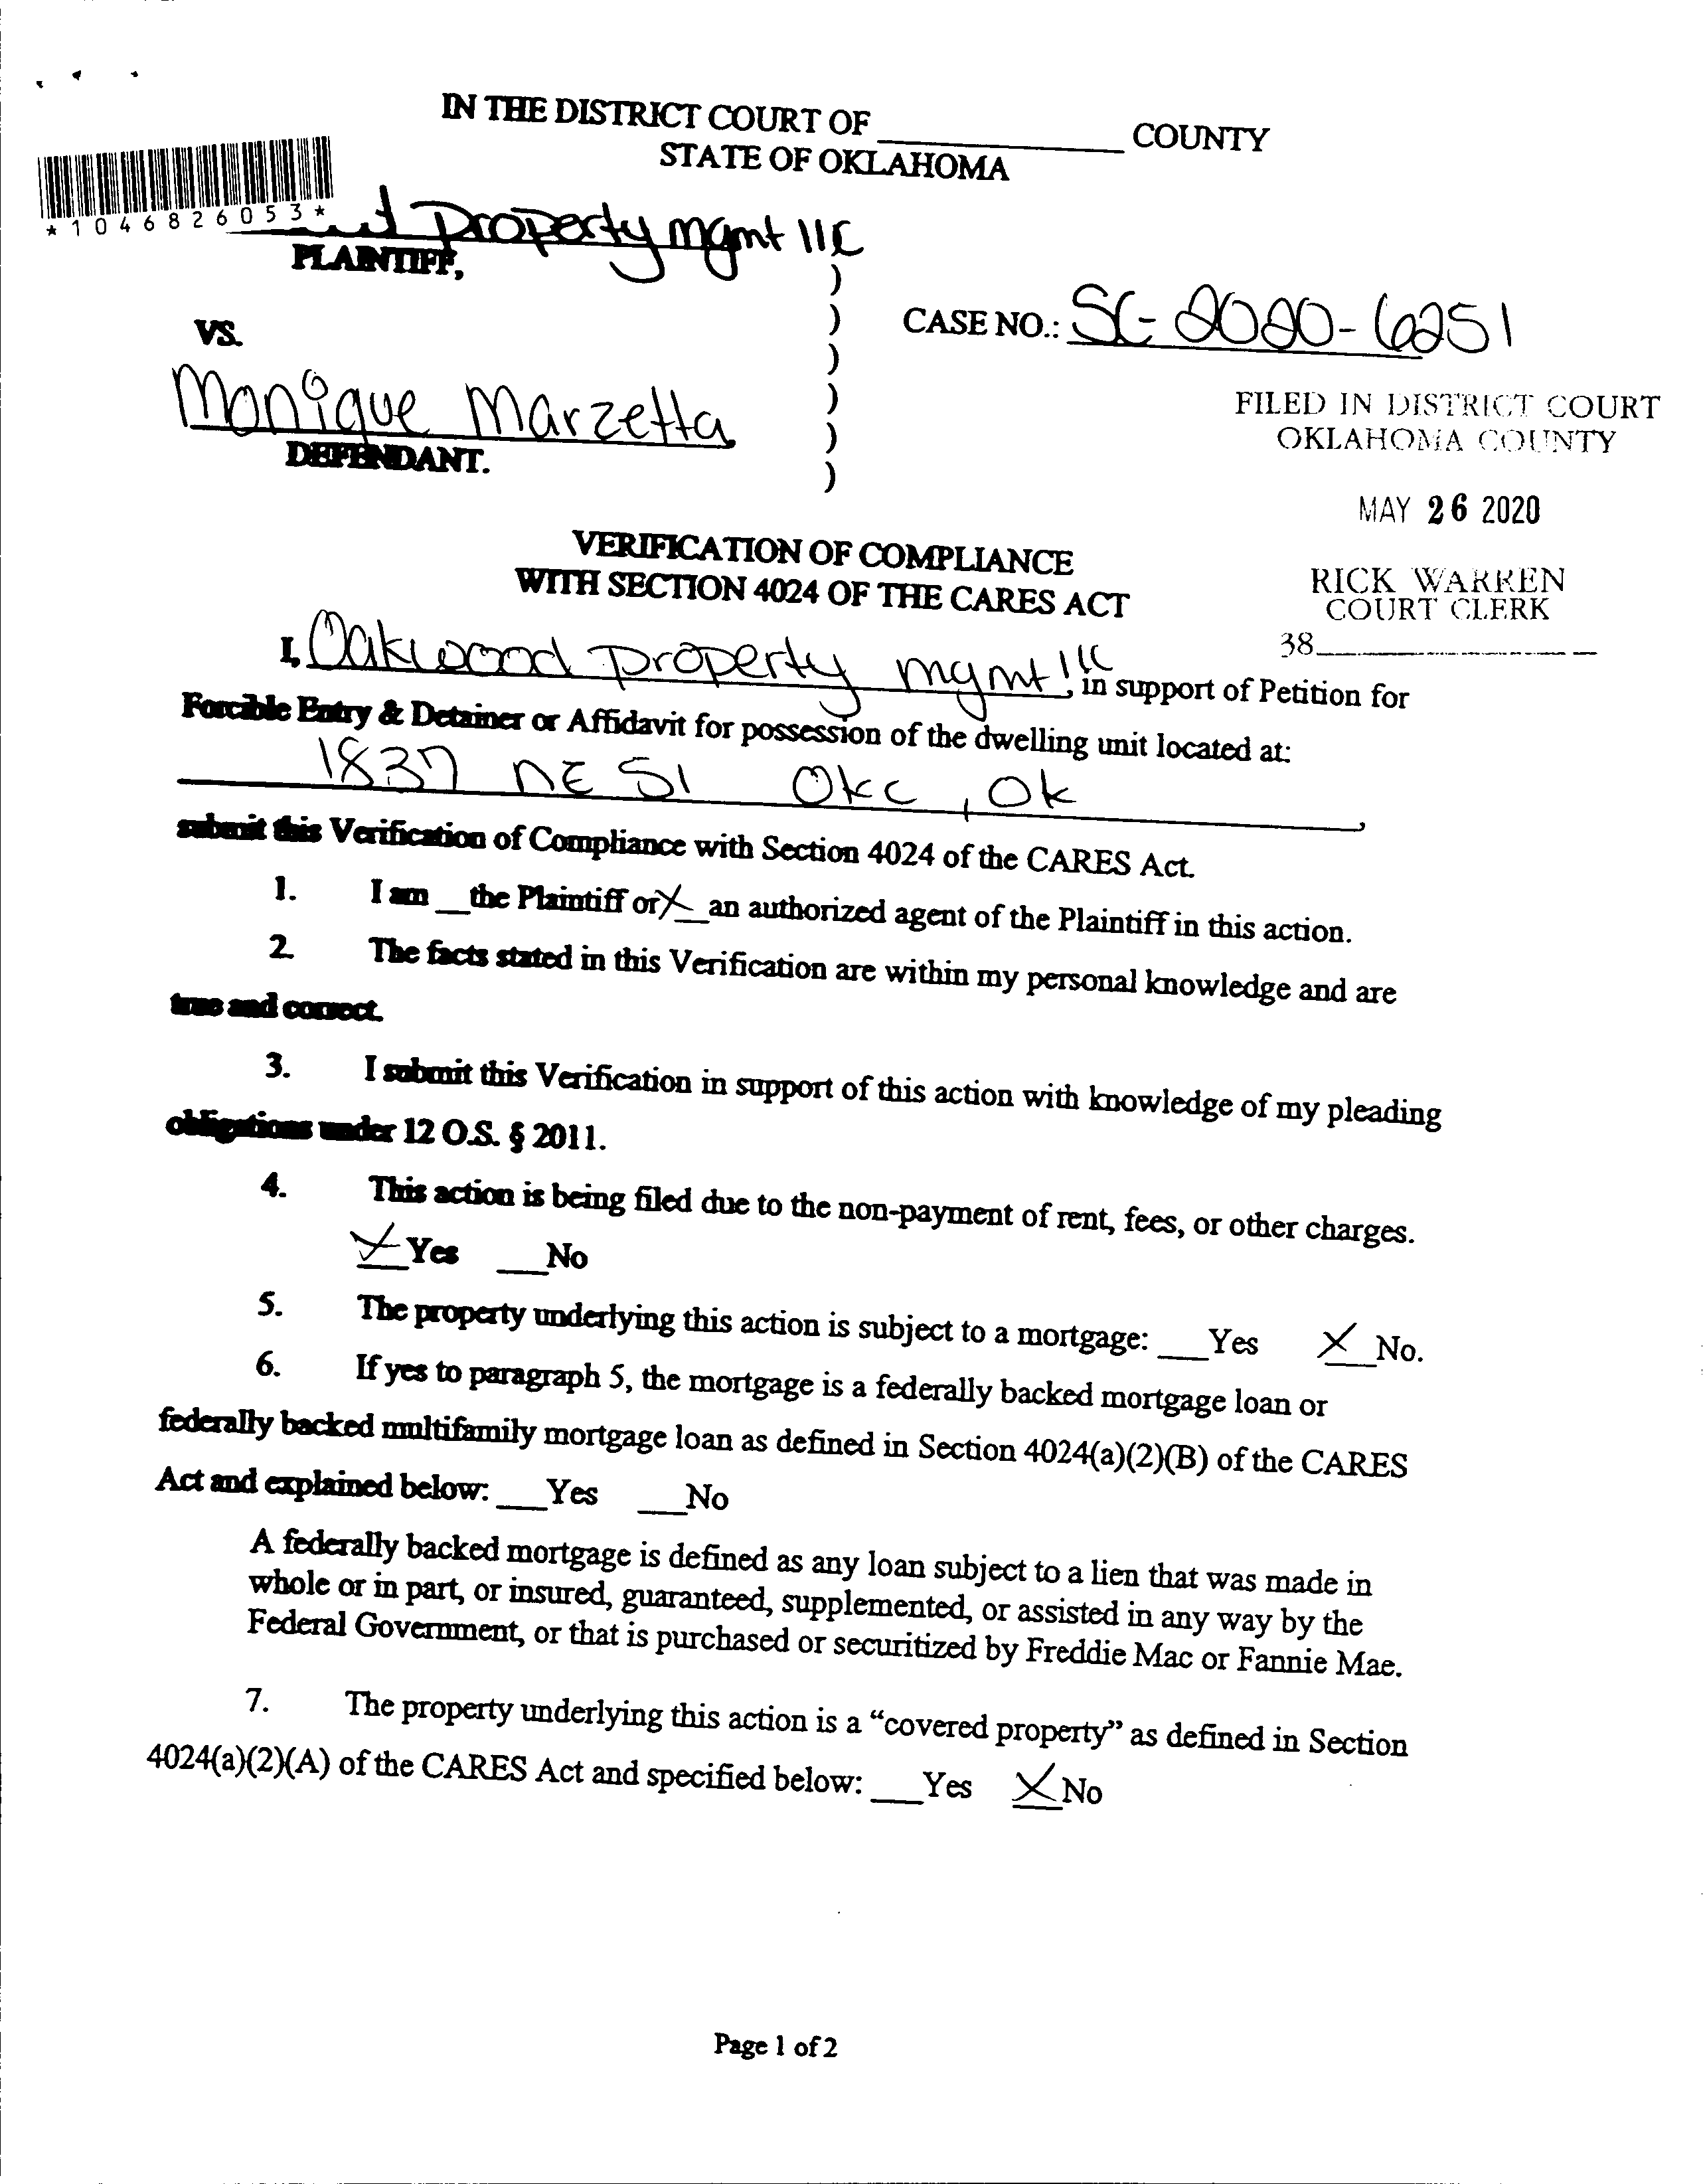 IN THE DISTRICT COURT OF ____________ COUNTY
STATE OF OKLAHOMA
*1046826053*
Property mgmt llc
PLAINTIFF,
)
VS.
)
CASE NO.: SC-2020-6251
)
Monique Marzetta
)
FILED IN DISTRICT COURT
OKLAHOMA COUNTY
DEFENDANT.
)
)
MAY 26 2020
VERIFICATION OF COMPLIANCE
WITH SECTION 4024 OF THE CARES ACT
RICK WARREN
COURT CLERK
38____________
I, Oakwood property mgmt llc, in support of Petition for
Forcible Entry & Detainer or Affidavit for possession of the dwelling unit located at:
1837 NE 51 OKC, OK,
submit this Verification of Compliance with Section 4024 of the CARES Act.
1. I am __the Plaintiff or X__an authorized agent of the Plaintiff in this action.
2. The facts stated in this Verification are within my personal knowledge and are
true and correct.
3. I submit this Verification in support of this action with knowledge of my pleading
obligations under 12 O.S. § 2011.
4. This action is being filed due to the non-payment of rent, fees, or other charges.
X Yes ___No
5. The property underlying this action is subject to a mortgage: ___Yes X No.
6. If yes to paragraph 5, the mortgage is a federally backed mortgage loan or
federally backed multifamily mortgage loan as defined in Section 4024(a)(2)(B) of the CARES
Act and explained below: ___Yes ___No
A federally backed mortgage is defined as any loan subject to a lien that was made in
whole or in part, or insured, guaranteed, supplemented, or assisted in any way by the
Federal Government, or that is purchased or securitized by Freddie Mac or Fannie Mae.
7. The property underlying this action is a “covered property” as defined in Section
4024(a)(2)(A) of the CARES Act and specified below: ___Yes X No
Page 1 of 2